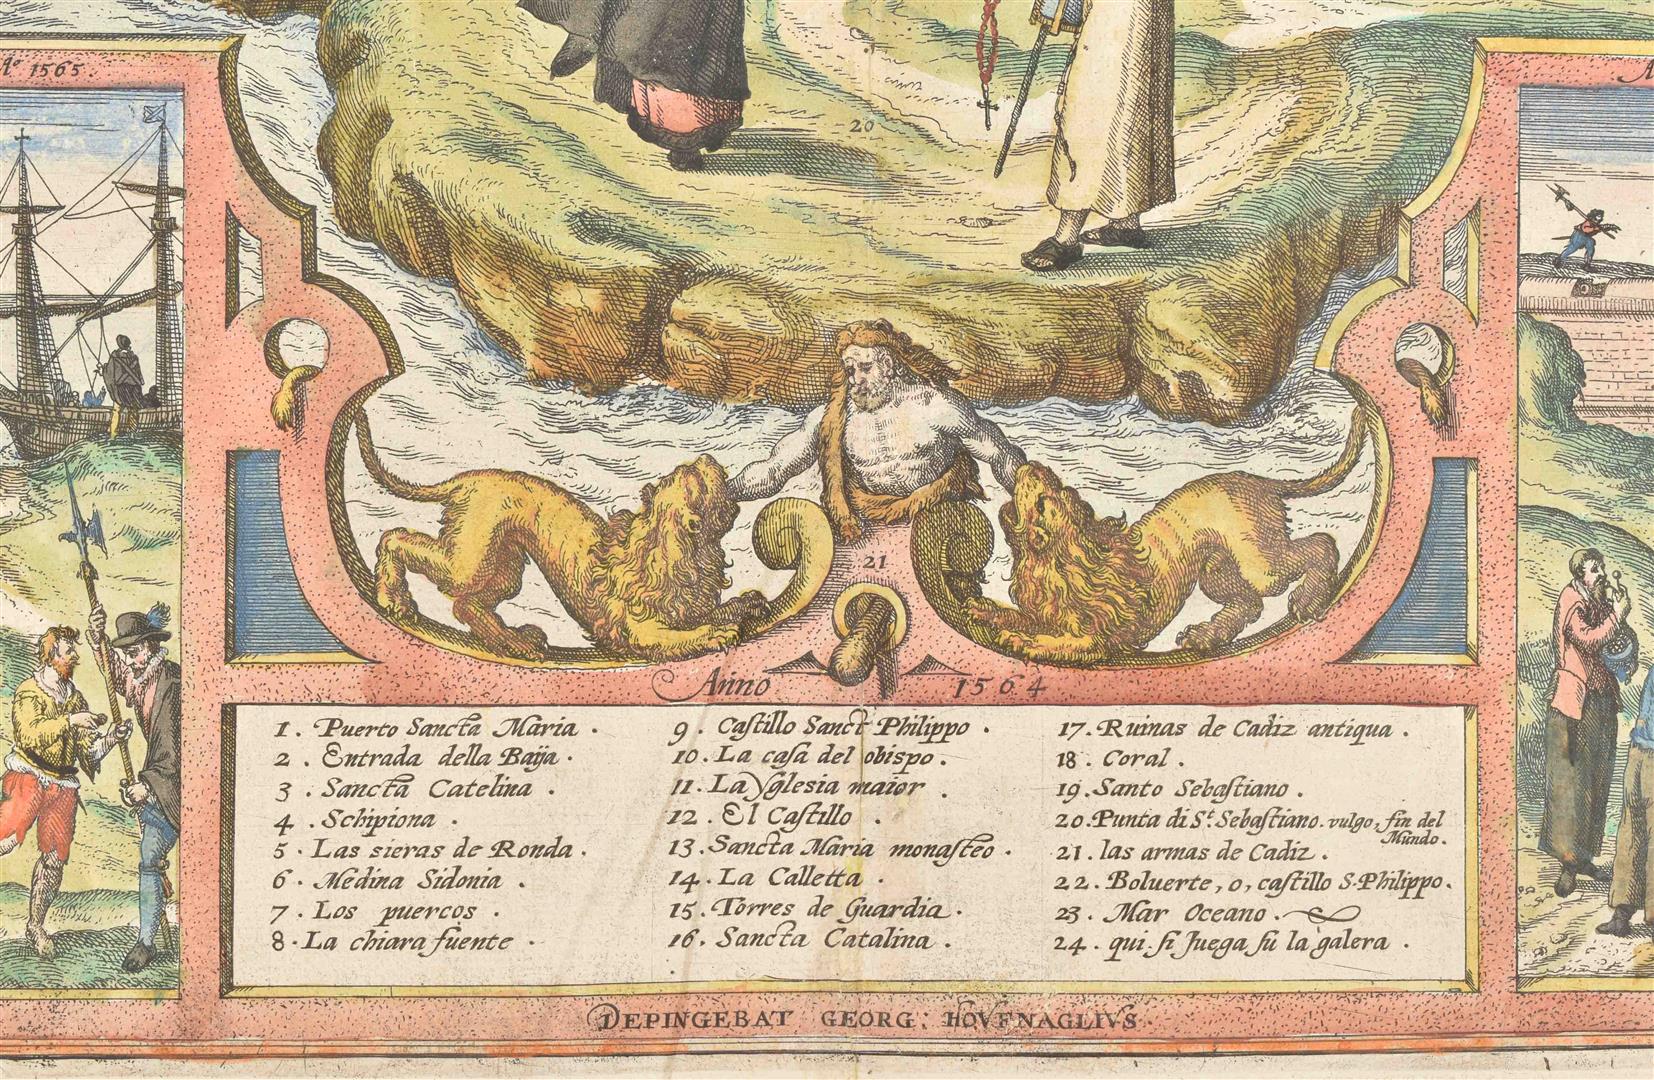 Aº 1565.
A
20
21
Anno 1564
1. Puerto Sancta Maria.
2. Entrada della Baija.
3. Sancta Catelina.
4. Schipiona.
5. Las sieras de Ronda.
6. Medina Sidonia.
7. Los puercos.
8. La chiara fuente.
9. Castillo Sanct Philippo.
10. La casa del obispo.
11. La Yglesia maior.
12. El Castillo.
13. Sancta Maria monasteo.
14. La Calletta.
15. Torres de Guardia.
16. Sancta Catalina.
17. Ruinas de Cadiz antiqua.
18. Coral.
19. Santo Sebastiano.
20. Punta di St. Sebastiano. vulgo, fin del
Mundo.
21. las armas de Cadiz.
22. Boluerte, o, castillo S. Philippo.
23. Mar Oceano.
24. qui si Juega su la galera.
DEPINGEBAT GEORG: HOVFNAGLIVS.